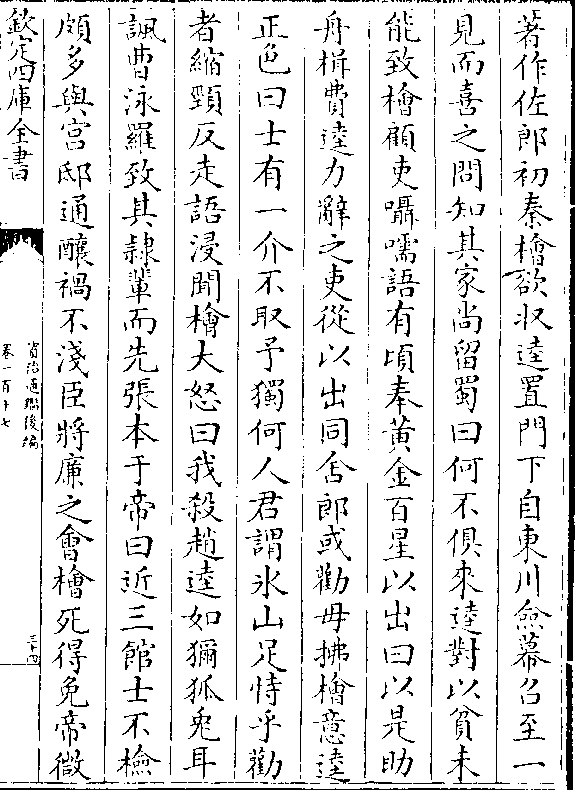 著作佐郎初秦檜欲収逵置門下自東川僉幕召至一
見而喜之問知其家尚留蜀曰何不俱來逵對以貧未
能致檜顧吏囁嚅語有頃奉黃金百星以出曰以是助
舟楫費逵力辭之吏從以出同舍郎或勸毋拂檜意逵
正色曰士有一介不取予獨何人君謂氷山足恃乎勸
者縮頸反走語浸聞檜大怒曰我殺趙逵如獮狐兎耳
諷曹泳羅致其隷輩而先張本于帝曰近三館士不檢
頗多與宫邸通釀禍不淺臣將廉之會檜死得免帝微
欽定四庫全書
資治通鑑後編
卷一百十七
三十四